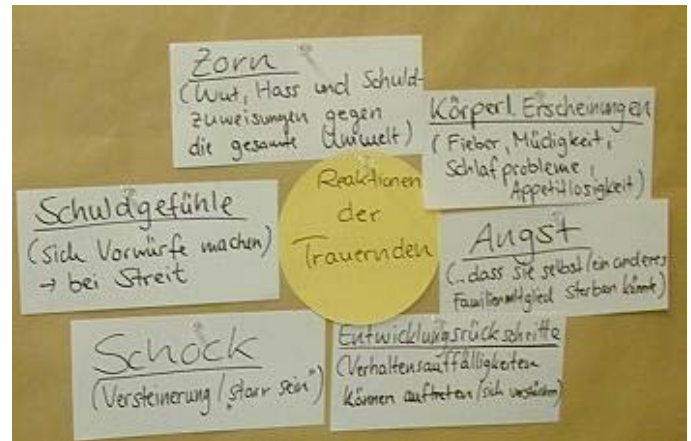 Zorn
(Wut, Hass und Schuld-
zuweisungen gegen
die gesamte Umwelt)
Körperl. Erscheinungen
(Fieber, Müdigkeit,
Schlafprobleme,
Appetitlosigkeit)
Reaktionen
der
Trauernden
Schuldgefühle
(sich Vorwürfe machen)
→ bei Streit
Angst
(...dass sie selbst/ein anderes
Familienmitglied sterben könnte)
Schock
(Versteinerung / "starr sein")
Entwicklungsrückschritte
(Verhaltensauffälligkeiten
können auftreten/sich verstärken)